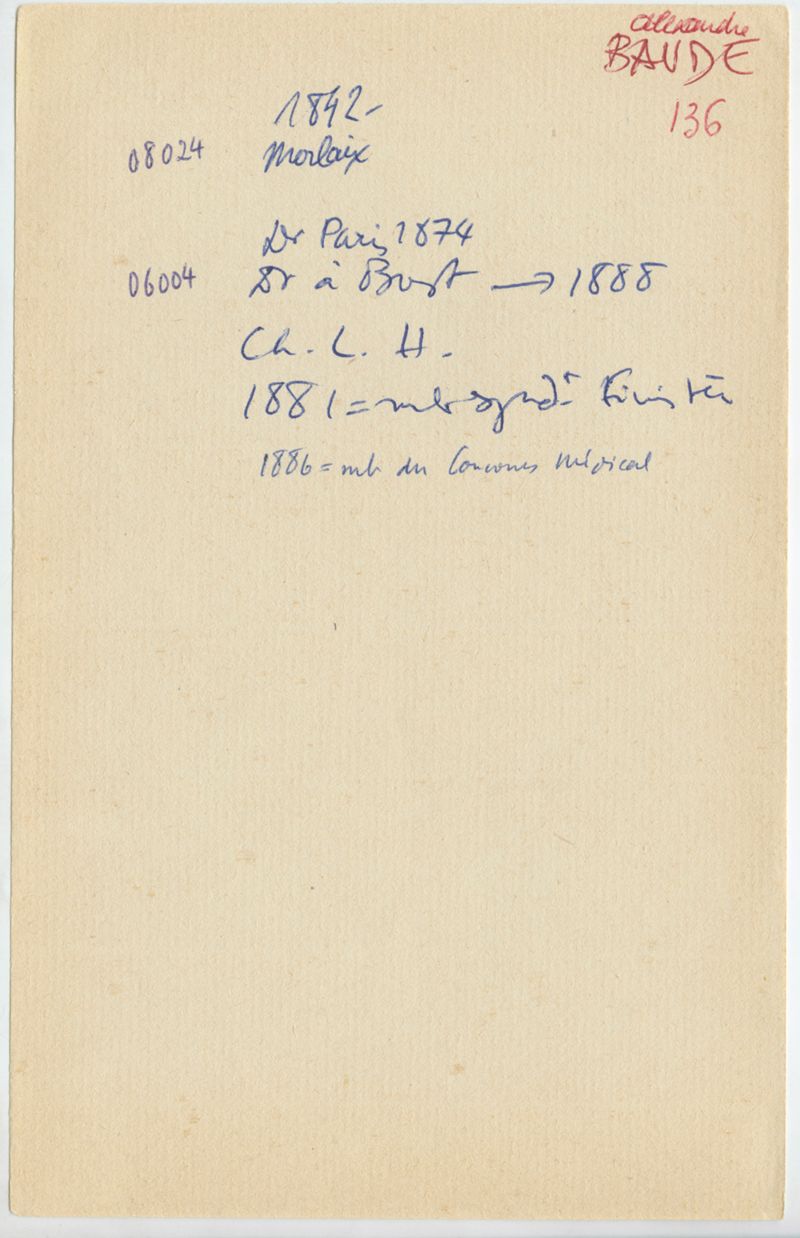 Alexandre
BAUDE
136
1842-
08024 Morlaix
Dr Paris 1874
06004 Dr à Brest → 1888
Ch. L. H.
1881 = mb synd.t Finistère
1886 = mb du Concours Médical